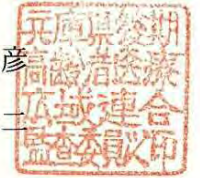 兵庫県後期
高齢者医療
広域連合
監査委員之印
彦二